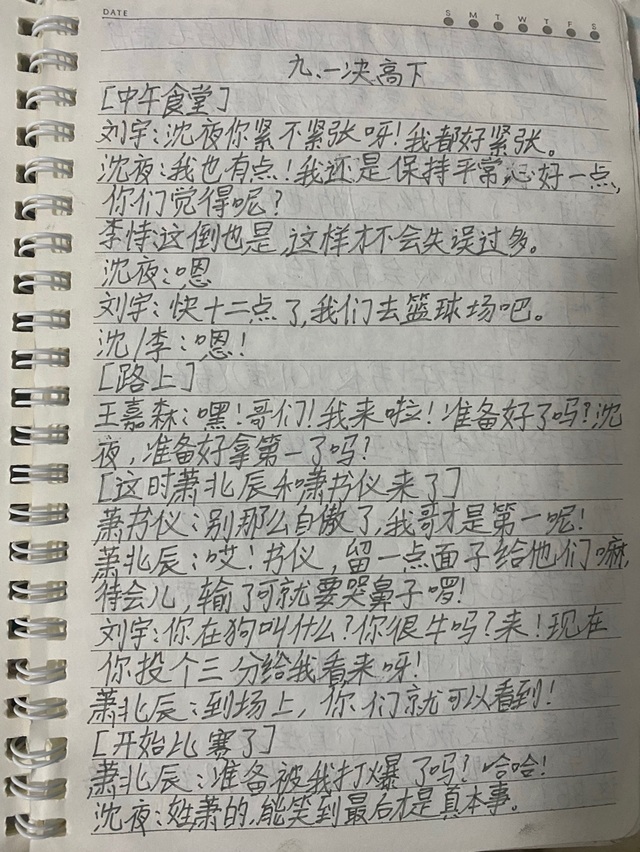 DATE
S M T W T F S
九、一决高下
[中午食堂]
刘宇:沈夜你紧不紧张呀!我都好紧张。
沈夜:我也有点!我还是保持平常心好一点,
你们觉得呢?
李恃:这倒也是,这样才不会失误过多。
沈夜:嗯
刘宇:快十二点了,我们去篮球场吧。
沈/李:嗯!
[路上]
王嘉森:嘿!哥们!我来啦!准备好了吗?沈
夜,准备好拿第一了吗?
[这时萧北辰和萧书仪来了]
萧书仪:别那么自傲了,我哥才是第一呢!
萧北辰:哎!书仪,留一点面子给他们嘛,
待会儿,输了可就要哭鼻子啰!
刘宇:你在狗叫什么?你很牛吗?来!现在
你投个三分给我看来呀!
萧北辰:到场上,你们就可以看到!
[开始比赛了]
萧北辰:准备被我打爆了吗?哈哈!
沈夜:姓萧的,能笑到最后才是真本事。